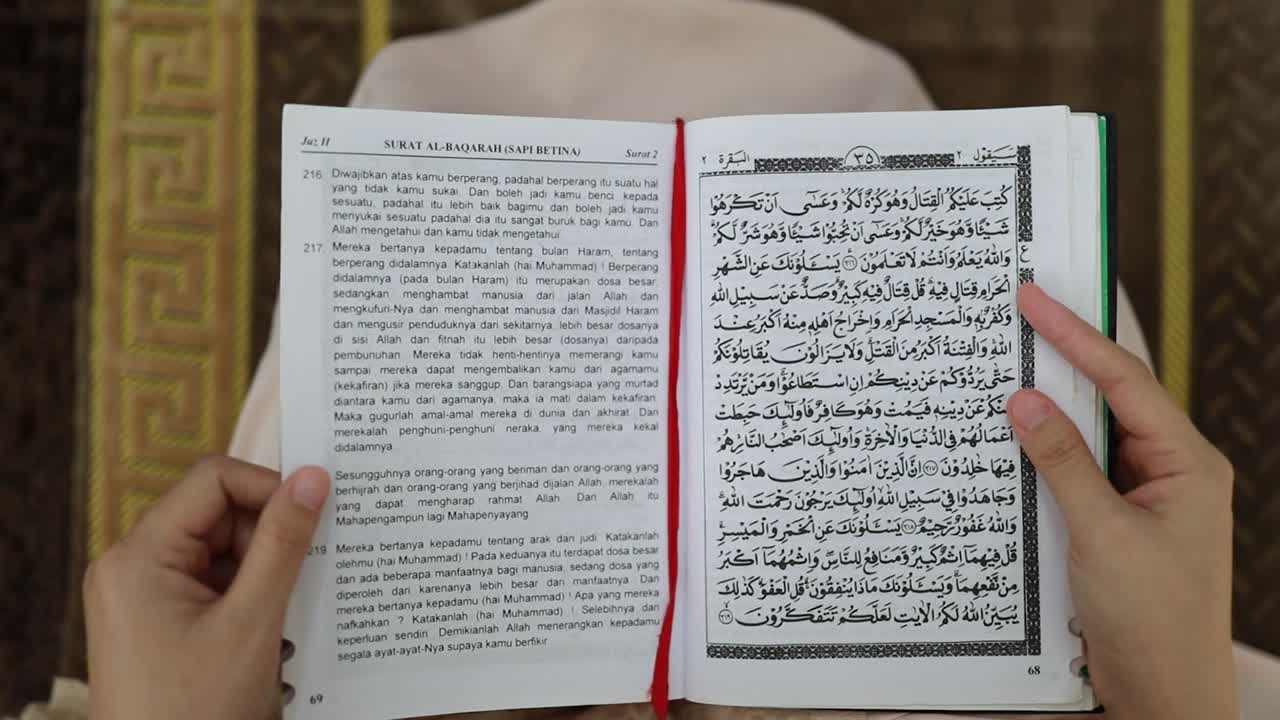 Juz II SURAT AL-BAQARAH (SAPI BETINA) Surat 2
216. Diwajibkan atas kamu berperang, padahal berperang itu suatu hal
yang tidak kamu sukai. Dan boleh jadi kamu benci kepada
sesuatu, padahal itu lebih baik bagimu dan boleh jadi kamu
menyukai sesuatu padahal dia itu sangat buruk bagi kamu. Dan
Allah mengetahui dan kamu tidak mengetahui.
217. Mereka bertanya kepadamu tentang bulan Haram, tentang
berperang didalamnya. Katakanlah (hai Muhammad) ! Berperang
didalamnya (pada bulan Haram) itu merupakan dosa besar,
sedangkan menghambat manusia dari jalan Allah dan
mengkufuri-Nya dan menghambat manusia dari Masjidil Haram
dan mengusir penduduknya dari sekitarnya, lebih besar dosanya
di sisi Allah dan fitnah itu lebih besar (dosanya) daripada
pembunuhan. Mereka tidak henti-hentinya memerangi kamu
sampai mereka dapat mengembalikan kamu dari agamamu
(kekafiran) jika mereka sanggup. Dan barangsiapa yang murtad
diantara kamu dari agamanya, maka ia mati dalam kekafiran.
Maka gugurlah amal-amal mereka di dunia dan akhirat. Dan
merekalah penghuni-penghuni neraka, yang mereka kekal
didalamnya.
Sesungguhnya orang-orang yang beriman dan orang-orang yang
berhijrah dan orang-orang yang berjihad dijalan Allah, merekalah
yang dapat mengharap rahmat Allah. Dan Allah itu
Mahapengampun lagi Mahapenyayang.
219. Mereka bertanya kepadamu tentang arak dan judi. Katakanlah
olehmu (hai Muhammad) ! Pada keduanya itu terdapat dosa besar
dan ada beberapa manfaatnya bagi manusia, sedang dosa yang
diperoleh dari karenanya lebih besar dari manfaatnya. Dan
mereka bertanya kepadamu (hai Muhammad) ! Apa yang mereka
nafkahkan ? Katakanlah (hai Muhammad) ! Selebihnya dari
keperluan sendiri. Demikianlah Allah menerangkan kepadamu
segala ayat-ayat-Nya supaya kamu berfikir.
69
سيقول ٢ ٣٥ البقرة ٢
كُتِبَ عَلَيْكُمُ الْقِتَالُ وَهُوَ كُرْهٌ لَّكُمْ ۚ وَعَسٰٓى اَنْ تَكْرَهُوْا
شَيْـًٔا وَّهُوَ خَيْرٌ لَّكُمْ ۚ وَعَسٰٓى اَنْ تُحِبُّوْا شَيْـًٔا وَّهُوَ شَرٌّ لَّكُمْ ۗ
وَاللّٰهُ يَعْلَمُ وَاَنْتُمْ لَا تَعْلَمُوْنَ ﴿٢١٦﴾ يَسْـَٔلُوْنَكَ عَنِ الشَّهْرِ
ع
الْحَرَامِ قِتَالٍ فِيْهِ ۗ قُلْ قِتَالٌ فِيْهِ كَبِيْرٌ ۗ وَصَدٌّ عَنْ سَبِيْلِ اللّٰهِ
وَكُفْرٌۢ بِهٖ وَالْمَسْجِدِ الْحَرَامِ وَاِخْرَاجُ اَهْلِهٖ مِنْهُ اَكْبَرُ عِنْدَ
اللّٰهِ ۚ وَالْفِتْنَةُ اَكْبَرُ مِنَ الْقَتْلِ ۗ وَلَا يَزَالُوْنَ يُقَاتِلُوْنَكُمْ
حَتّٰى يَرُدُّوْكُمْ عَنْ دِيْنِكُمْ اِنِ اسْتَطَاعُوْا ۗ وَمَنْ يَّرْتَدِدْ
مِنْكُمْ عَنْ دِيْنِهٖ فَيَمُتْ وَهُوَ كَافِرٌ فَاُولٰٓئِكَ حَبِطَتْ
اَعْمَالُهُمْ فِى الدُّنْيَا وَالْاٰخِرَةِ ۚ وَاُولٰٓئِكَ اَصْحٰبُ النَّارِ ۚ هُمْ
فِيْهَا خٰلِدُوْنَ ﴿٢١٧﴾ اِنَّ الَّذِيْنَ اٰمَنُوْا وَالَّذِيْنَ هَاجَرُوْا
وَجَاهَدُوْا فِيْ سَبِيْلِ اللّٰهِ اُولٰٓئِكَ يَرْجُوْنَ رَحْمَتَ اللّٰهِ ۗ
وَاللّٰهُ غَفُوْرٌ رَّحِيْمٌ ﴿٢١٨﴾ يَسْـَٔلُوْنَكَ عَنِ الْخَمْرِ وَالْمَيْسِرِ ۗ
قُلْ فِيْهِمَآ اِثْمٌ كَبِيْرٌ وَّمَنَافِعُ لِلنَّاسِ ۖ وَاِثْمُهُمَآ اَكْبَرُ
مِنْ نَّفْعِهِمَا ۗ وَيَسْـَٔلُوْنَكَ مَاذَا يُنْفِقُوْنَ ۗ قُلِ الْعَفْوَ ۗ كَذٰلِكَ
يُبَيِّنُ اللّٰهُ لَكُمُ الْاٰيٰتِ لَعَلَّكُمْ تَتَفَكَّرُوْنَ ﴿٢١٩﴾
68